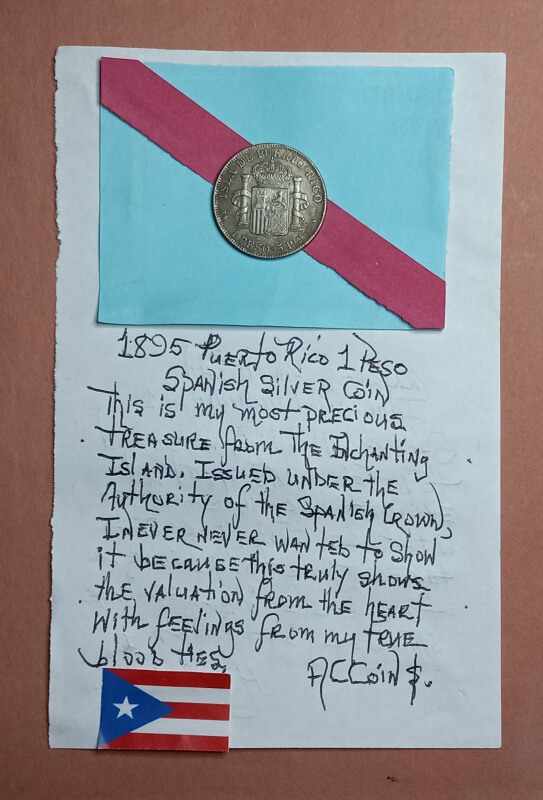 ISLA DE PUERTO RICO
1 PESO
1895 Puerto Rico 1 Peso
Spanish Silver Coin
This is my most precious
treasure from the Enchanting
Island. Issued under the
Authority of the Spanish Crown,
I never never wanted to show
it because this truly shows
the valuation from the heart
with feelings from my true
blood ties,
ACCoin $.